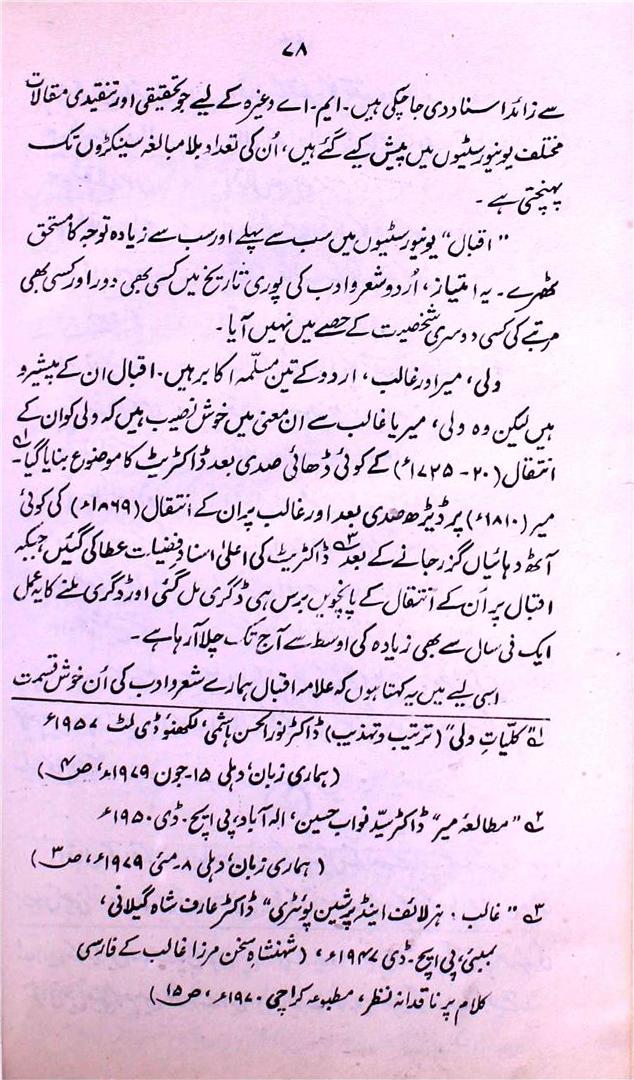 ۷۸
سے زائد اسناد دی جا چکی ہیں۔ ایم۔ اے وغیرہ کے لیے جو تحقیقی اور تنقیدی مقالات
مختلف یونیورسٹیوں میں پیش کیے گئے ہیں، اُن کی تعداد بلا مبالغہ سینکڑوں تک
پہنچتی ہے۔
"اقبال" یونیورسٹیوں میں سب سے پہلے اور سب سے زیادہ توجہ کا مستحق
ٹھہرے۔ یہ امتیاز، اُردو شعر و ادب کی پوری تاریخ میں کسی بھی دور اور کسی بھی
مرتبے کی کسی دوسری شخصیت کے حصے میں نہیں آیا۔
ولی، میر اور غالب، اردو کے تین مسلّمہ اکابر ہیں۔ اقبال ان کے پیشرو
ہیں لیکن وہ ولی، میر یا غالب سے ان معنی میں خوش نصیب ہیں کہ ولی کو ان کے
انتقال (۲۰-۱۷۲۵ء) کے کوئی ڈھائی صدی بعد ڈاکٹریٹ کا موضوع بنایا گیا۔۱
میر (۱۸۱۰ء) پر ڈیڑھ صدی بعد اور غالب پر ان کے انتقال (۱۸۶۹ء) کی کوئی
آٹھ دہائیاں گزر جانے کے بعد۳ ڈاکٹریٹ کی اعلیٰ اسنادِ فضیلت عطا کی گئیں جبکہ
اقبال پر اُن کے انتقال کے پانچویں برس ہی ڈگری مل گئی اور ڈگری ملنے کا یہ عمل
ایک فی سال سے بھی زیادہ کی اوسط سے آج تک چلا آ رہا ہے۔
اسی لیے میں یہ کہتا ہوں کہ علامہ اقبال ہمارے شعر و ادب کی اُن خوش قسمت
۱ "کلیّاتِ ولی" (ترتیب و تہذیب) ڈاکٹر نور الحسن ہاشمی، لکھنؤ ڈی لٹ ۱۹۵۷ء
(ہماری زبان، دہلی ۱۵۔جون ۱۹۷۹ء، ص ۴)
۲ "مطالعۂ میر" ڈاکٹر سیّد نواب حسین، الہ آباد، پی ایچ۔ڈی ۱۹۵۰ء
(ہماری زبان، دہلی ۸۔مئی ۱۹۷۹ء، ص ۳)
۳ "غالب، ہز لائف اینڈ پرشین پوئٹری" ڈاکٹر عارف شاہ گیلانی،
بمبئی، پی ایچ۔ڈی ۱۹۴۷ء، (شہنشاہِ سخن مرزا غالب کے فارسی
کلام پر ناقدانہ نظر، مطبوعہ کراچی ۱۹۷۰ء، ص ۱۵)